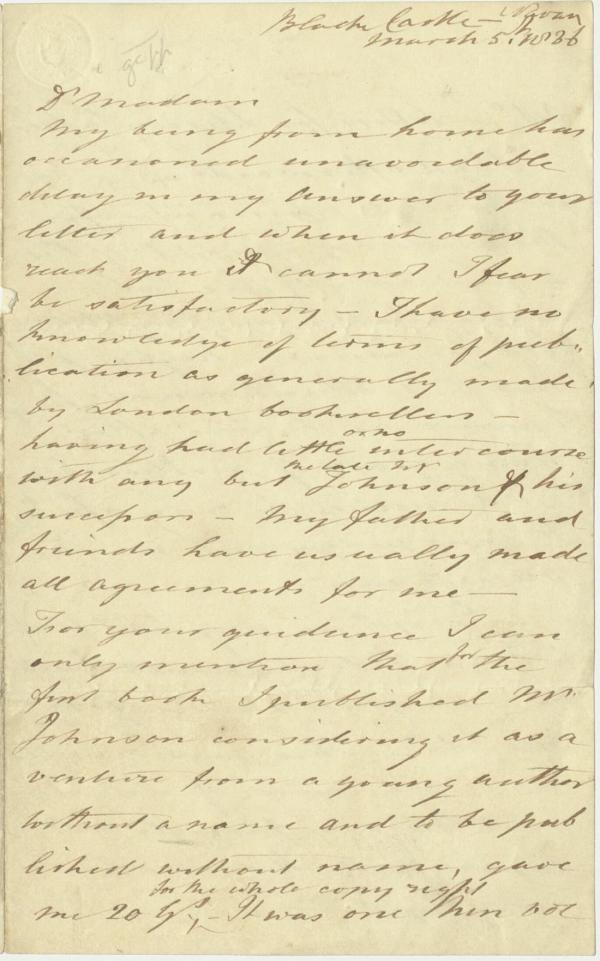 Black Castle – Navan
March 5. 1836
Dr Madam
My being from home has
occasioned unavoidable
delay in my answer to your
letter and when it does
reach you I cannot I fear
be satisfactory – I have no
knowledge of terms of pub-
lication as generally made
by London booksellers –
having had little or no intercourse
with any but the late Mr Johnson & his
successors – My father and
friends have usually made
all agreements for me –
For your guidance I can
only mention that for the
first book I published Mr
Johnson considering it as a
venture from a young author
without a name and to be pub
lished without name, gave
me 20 Gs for the whole copy right – It was one then vol